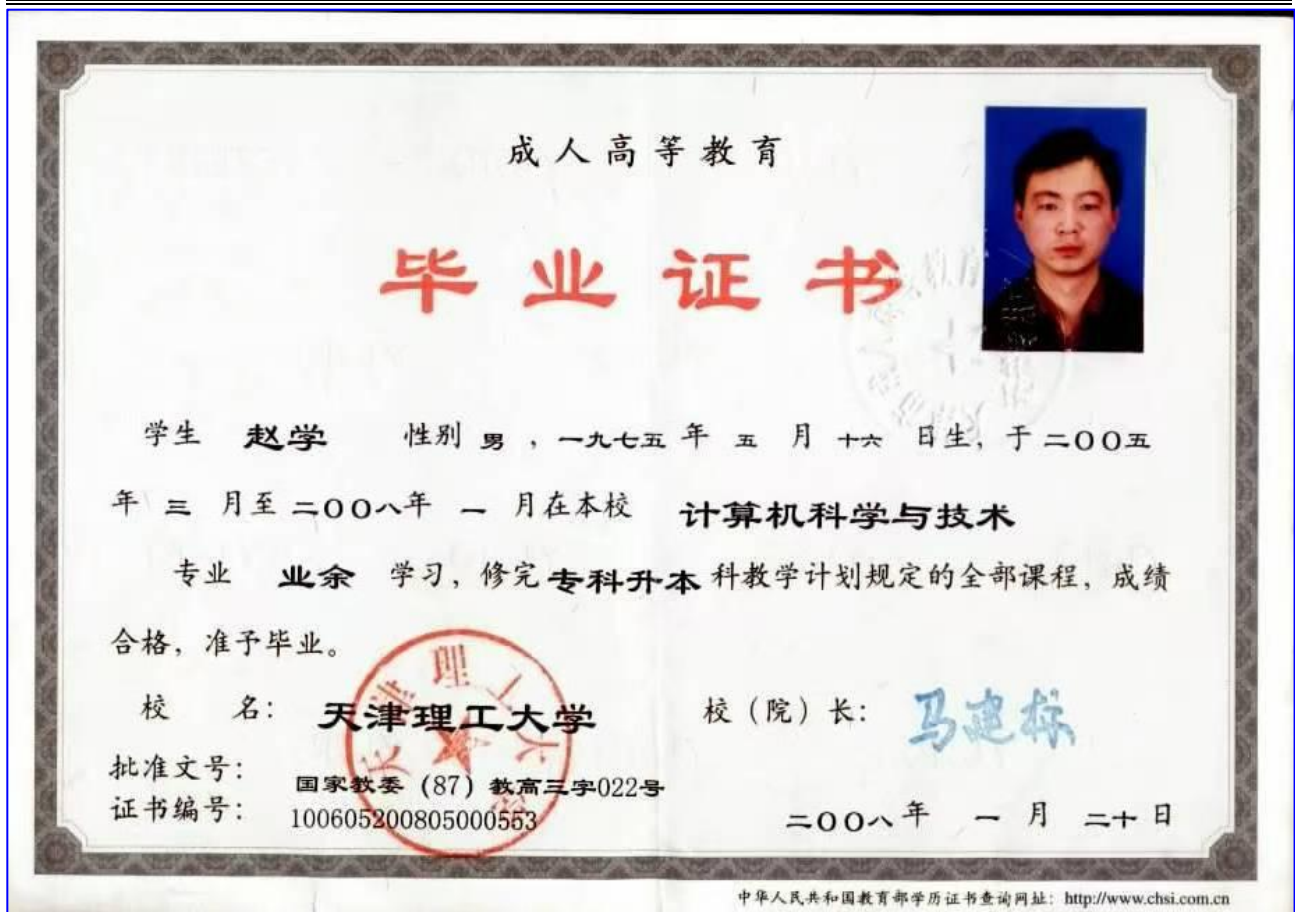 成人高等教育
毕业证书
学生 赵学 性别 男，一九七五 年 五 月 十六 日生，于 二〇〇五
年 三 月至 二〇〇八年 一 月在本校 计算机科学与技术
专业 业余 学习，修完 专科升本 科教学计划规定的全部课程，成绩
合格，准予毕业。
校 名： 天津理工大学 校（院）长： 马建标
天津理工大学
批准文号： 国家教委（87）教高三字022号
证书编号： 100605200805000553
二〇〇八 年 一 月 二十 日
中华人民共和国教育部学历证书查询网址：http://www.chsi.com.cn